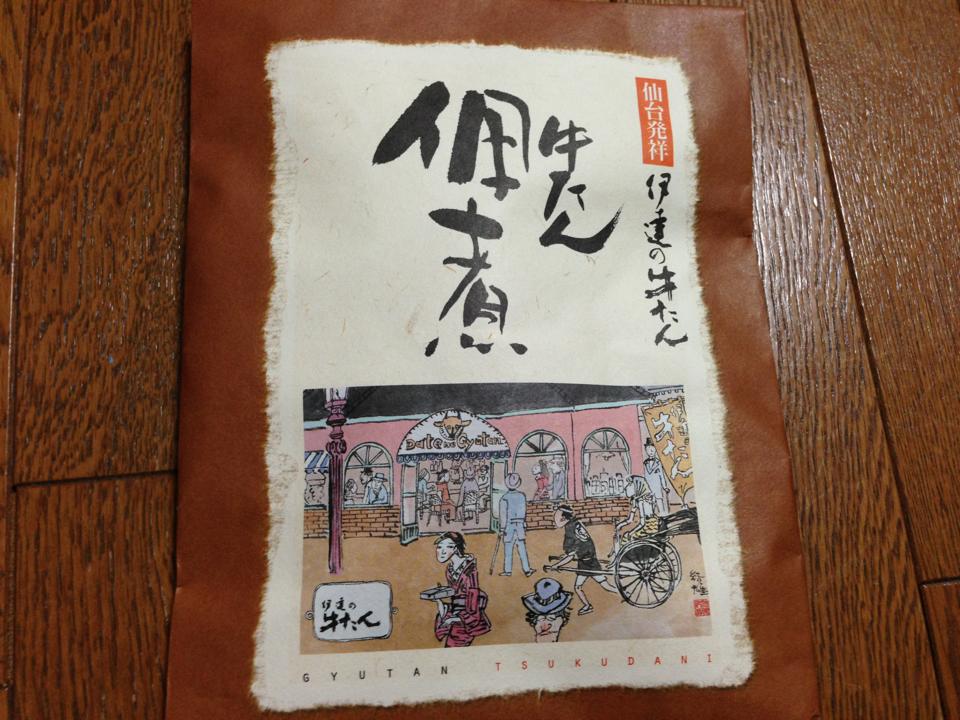 仙台発祥
伊達の牛たん
牛たん
佃煮
Date no Gyutan
牛たん
伊達の
牛たん
GYUTAN TSUKUDANI